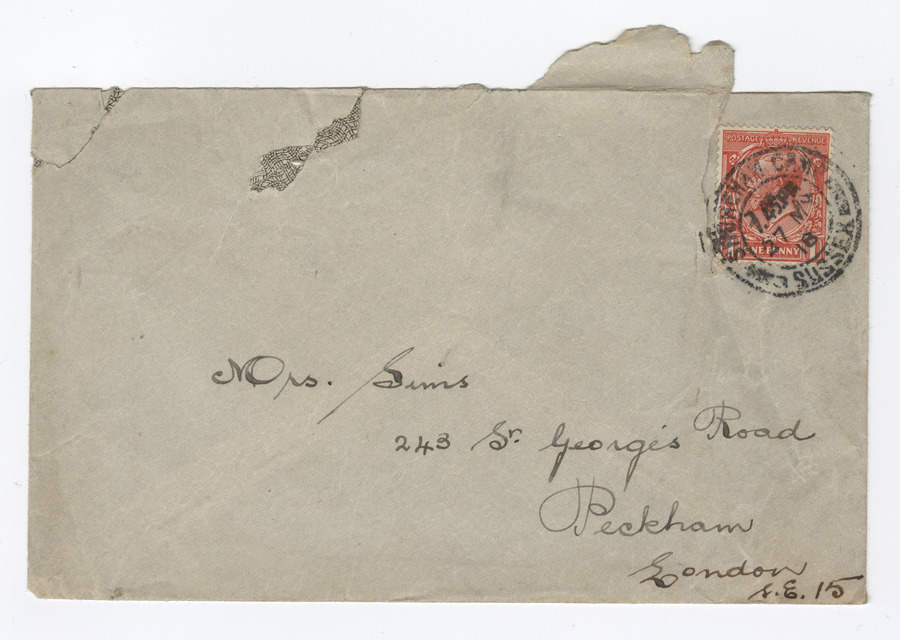 POSTAGE REVENUE
ONE PENNY
SHOREHAM CAMP SUSSEX
27 MY
18
Mrs. Sims
243 St. George's Road
Peckham
London
S.E. 15